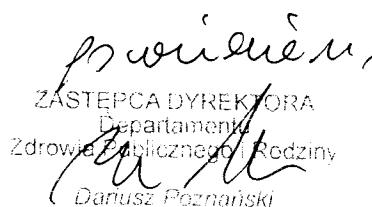 ZASTĘPCA DYREKTORA
Departamentu
Zdrowia Publicznego i Rodziny
Dariusz Poznański